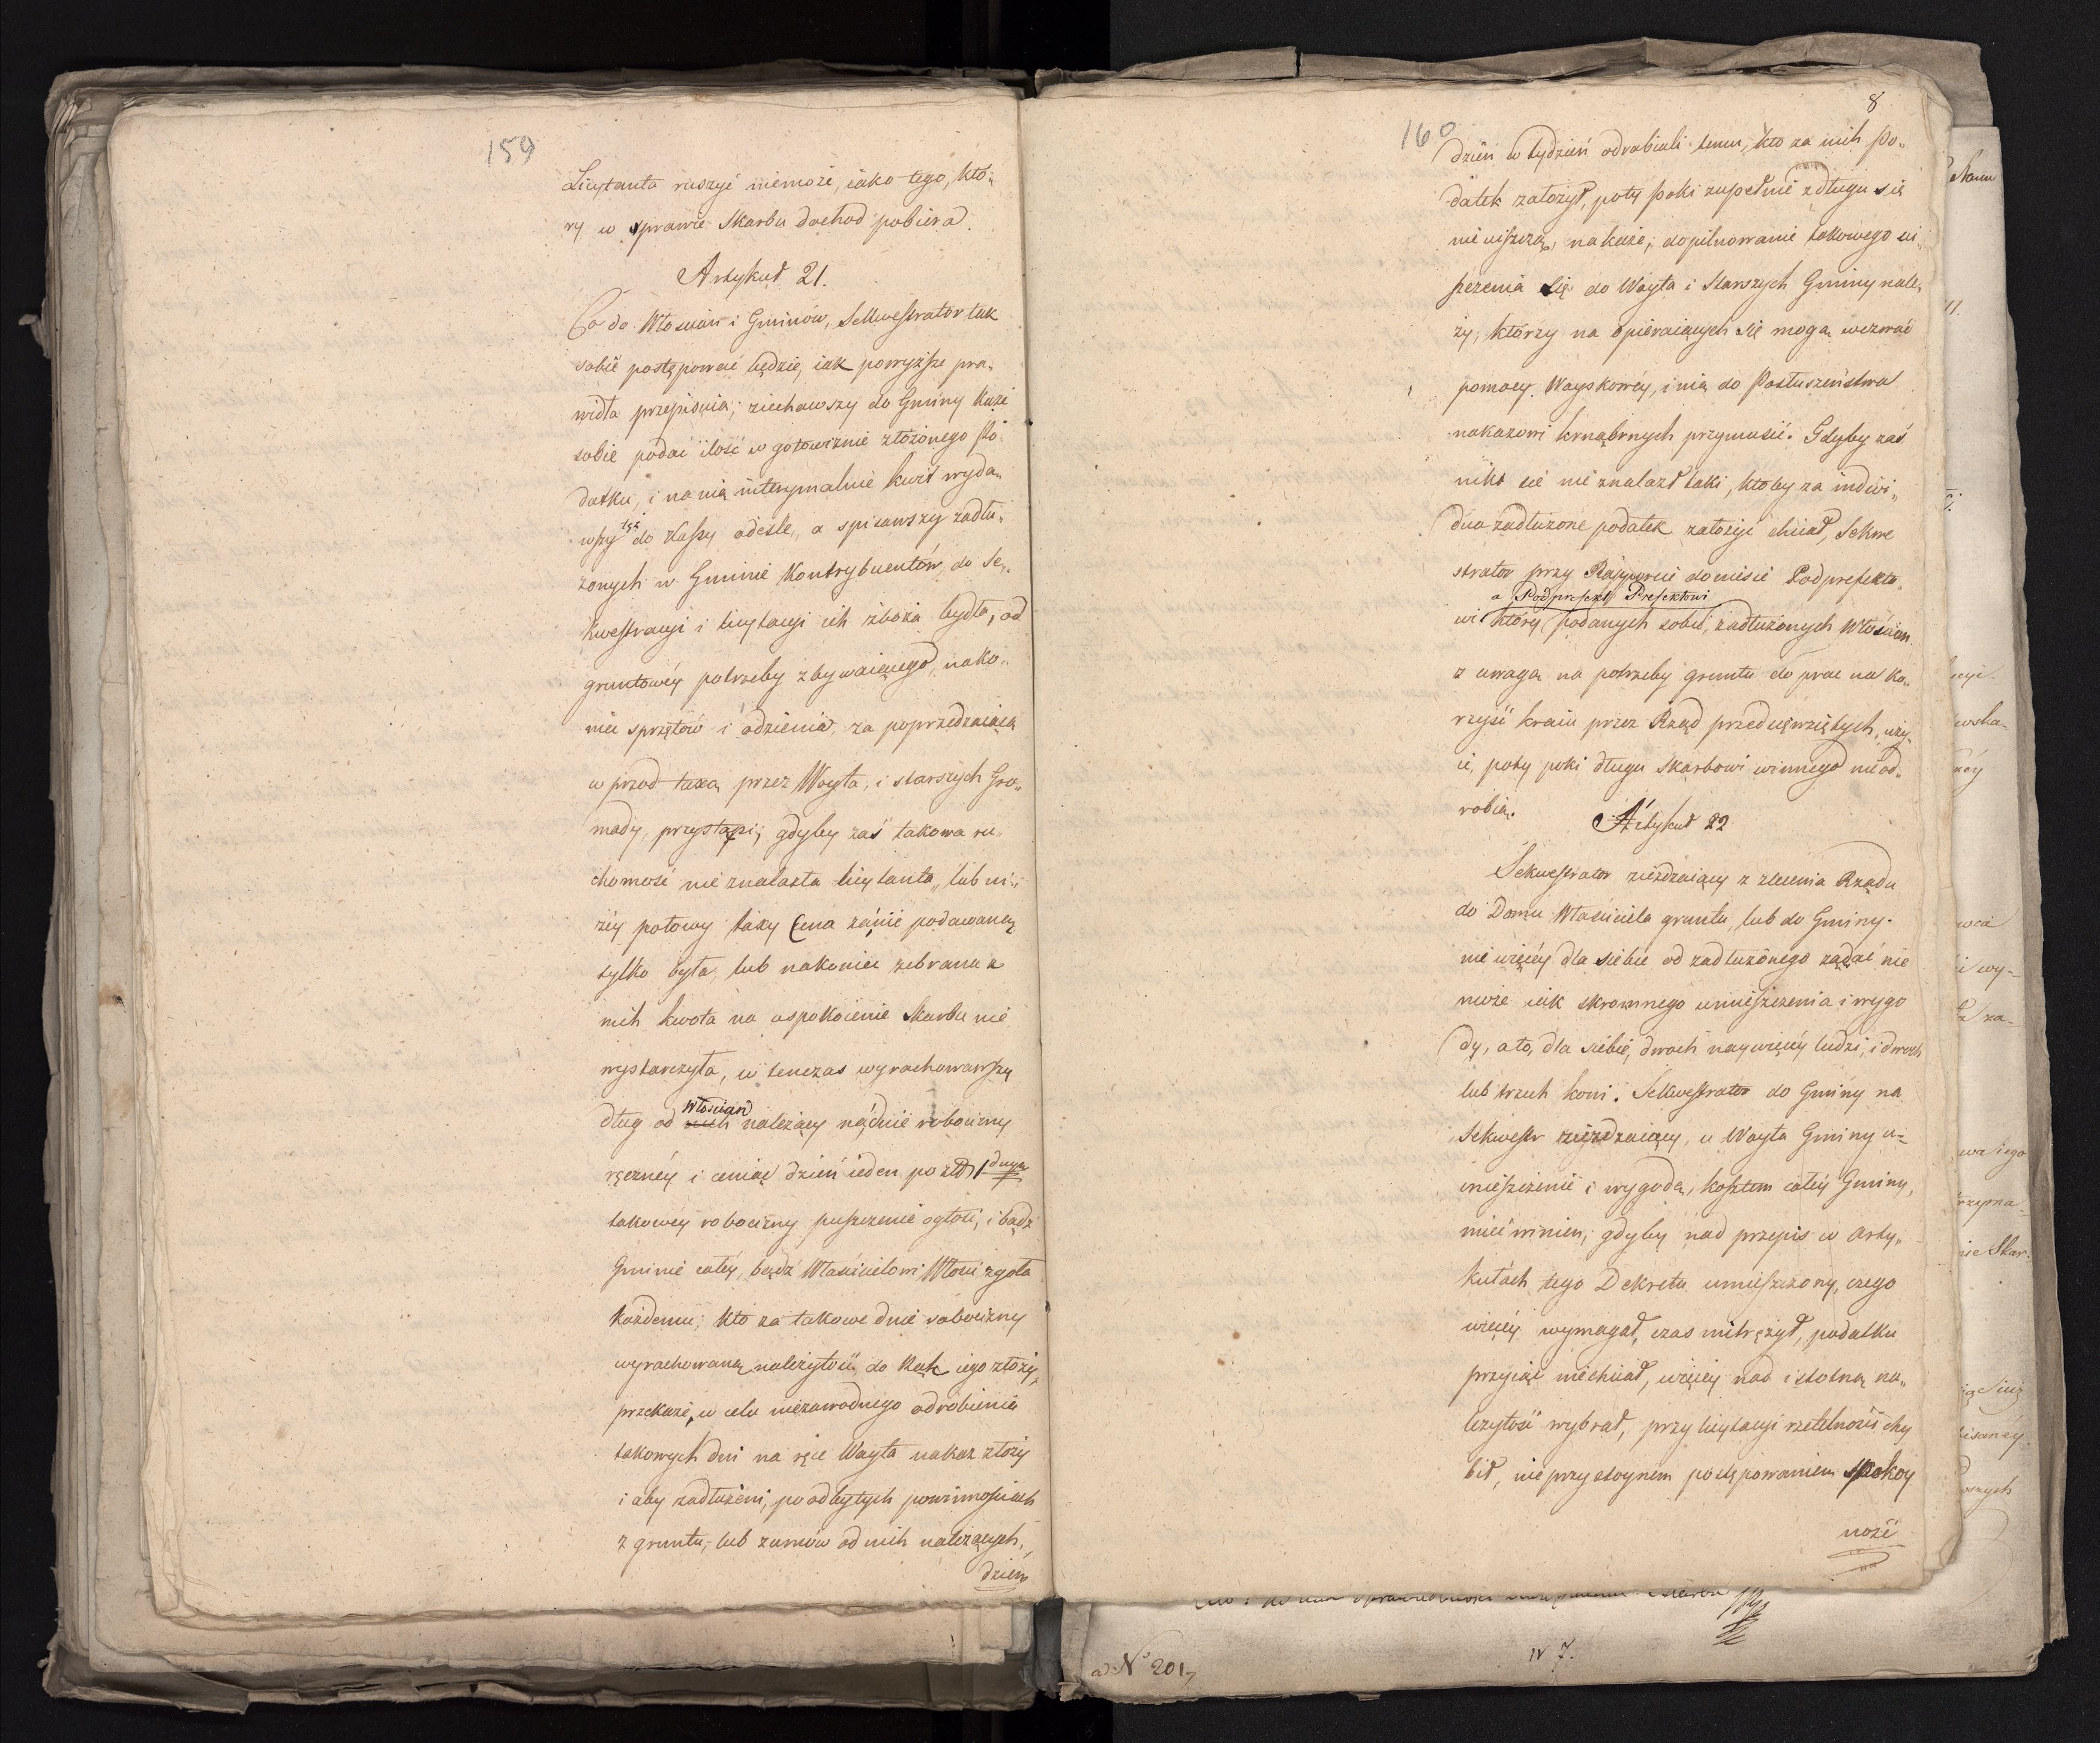 159
Licytanta ruszyć niemoże, iako tego, któ„
ry w sprawie Skarbu dochod pobiera.
Artykuł 21.
Co do Włościan i Gminow, Sekwestrator tak
sobie postępować będzie, iak powyższe pra„
widła przepisuią; ziechawszy do Gminy każe
sobie podać ilość w gotowiznie złożonego Po„
datku, i na nią interymalnie kwit wyda„
wszy tęż do Kassy odeśle, a spisawszy zadłu„
żonych w Gminie Kontrybuentów do Se„
kwestracyi i licytacyi ich zboża bydła, od
gruntowéy potrzeby zbywaiącego, nako„
niec sprzętów i odzienia, za poprzedzaiącą
w przod taxą przez Woyta, i starszych Gro„
mady, przystąpi; gdyby zaś takowa ru„
chomość nie znalazła licytanta, lub ni„
żéy połowy taxy Cena zánie podawaną
tylko była, lub nakoniec zebrana z
nich kwota na uspokoienie Skarbu nie
wystarczyła, w tenczas wyrachowawszy
dług od Włościan należący ná dnie robocizny
ręcznéy i ceniąc dzień ieden po złł 1
takowéy robocizny puszczenie ogłosi, i bądź
Gminie całéy, bądź Właścicielowi Włosci zgoła
każdemu, kto za takowe dnie robocizny
wyrachowaną należytość do Rąk iego złoży,
przekaże, w celu niezawodnego odrobienia
takowych dni na ręce Woyta nakaz złoży
i aby zadłużeni, po odbytych powinnościach
z gruntu, lub zarnów od nich należących,
dzień
160
8
dzień w tydzień odrabiali temu, kto za nich Po„
datek założył, poty poki zupełnie z długu się
nie uiszczą, nakaże; dopilnowanie takowego ui„
szczenia się do Woyta i Starszych Gminy nale„
ży, którzy na opieraiących się mogą wezwać
pomocy Woyskowéy, i nią do Posłuszeństwa
nakazowi krnąbrnych przymusić. Gdyby zaś
nikt się nie znalazł taki, któby za indiwi„
dua zadłużone podatek założyć chciał, Sekwe
strator przy Rapporcie doniesie Podprefekto„
a Podprefekt Prefektowi
wi który podanych sobie, zadłużonych Włościan
z uwagą na potrzeby gruntu do prac na ko„
rzyść kraiu przez Rząd przedsięwziętych, uży„
ie, poty poki długu Skarbowi winnego nie od„
robią.
Artykuł 22
Sekwestrator zieżdzaiący z zlecenia Rządu
do Domu Właściciela gruntu, lub do Gminy
nie więcéy dla siebie od zadłużonego żądać nie
może iak skromnego umieszczenia i wygo
dy, a to, dla siebie, dwoch naywięcéy ludzi, i dwoch
lub trzech koni. Sekwestrator do Gminy na
Sekwestr zieżdzaiący, u Woyta Gminy u=
mieszczenie i wygodą, kosztem całéy Gminy,
mieć winien; gdyby nad przepis w Arty„
kułach tego Dekretu umieszczony, czego
więcéy wymagał, czas mitrężył, podatku
przyiąć niechciał, więcéy nad istotną na„
leżytość wybrał, przy licytacyi rzetelności chy
bił, nieprzystoynem postępowaniem spokoy
ność
a N° 201,
N 7.